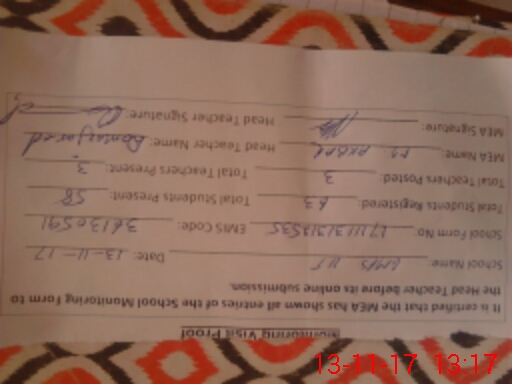 Monitoring Visit Proof
It is certified that the MEA has shown all entries of the School Monitoring Form to
the Head Teacher before its online submission.
School Name: Date: 13-11-17
School Form No: EMIS Code: 36130591
Total Students Registered: 63 Total Students Present: 58
Total Teachers Posted: 3 Total Teachers Present: 3
MEA Name: Head Teacher Name:
MEA Signature: Head Teacher Signature:
13-11-17 13:17